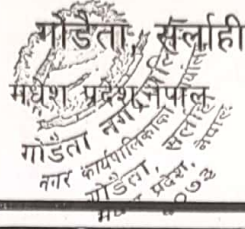 गोडैता, सर्लाही
मधेश प्रदेश, नेपाल
गोडैता नगर
नगर कार्यपालिकाको
गोडैता, सर्लाही
प्रदेश, नेपाल
२०७३